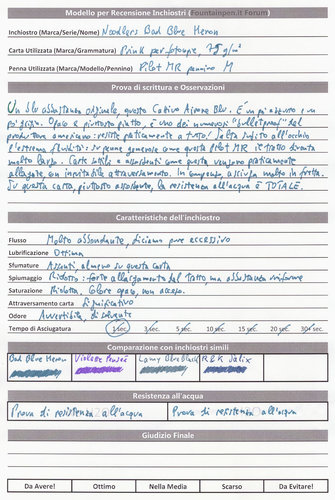 Modello per Recensione Inchiostri (Fountainpen.it Forum)
Inchiostro (Marca/Serie/Nome) Noodlers Bad Blue Heron
Carta Utilizzata (Marca/Grammatura) 75 g/m²
Penna Utilizzata (Marca/Modello/Pennino) Pilot MR pennino M
Prova di scrittura e Osservazioni
Un blu abbastanza originale, questo Cattivo Airone Blu. È un po' azzurro e un
po' grigio. Opaco e piuttosto piatto, è uno dei numerosi "bulletproof" del
produttore americano: resiste praticamente a tutto! Salta subito all'occhio
l'estrema fluidità: su penne generose come questa Pilot MR il tratto diventa
molto largo. Carte sottili e assorbenti come questa vengono praticamente
allagate, con inevitabile attraversamento. In compenso, asciuga molto in fretta.
Su questa carta, piuttosto assorbente, la resistenza all'acqua è TOTALE.
Caratteristiche dell'inchiostro
Flusso Molto abbondante, diciamo pure eccessivo
Lubrificazione Ottima
Sfumature Assenti, almeno su questa carta
Spiumaggio Ridotto: forte allargamento del tratto, ma abbastanza uniforme
Saturazione Ridotta. Colore opaco, non acceso.
Attraversamento carta Significativo
Odore Avvertibile, di
Tempo di Asciugatura 1 sec 3 sec 5 sec 10 sec 15 sec 20 sec 30+ sec
Comparazione con inchiostri simili
Bad Blue Heron Violette Pensée Lamy Blue Black R&K Salix
Resistenza all'acqua
Prova di resistenza all'acqua Prova di resistenza all'acqua
Giudizio Finale
Da Avere! Ottimo Nella Media Scarso Da Evitare!